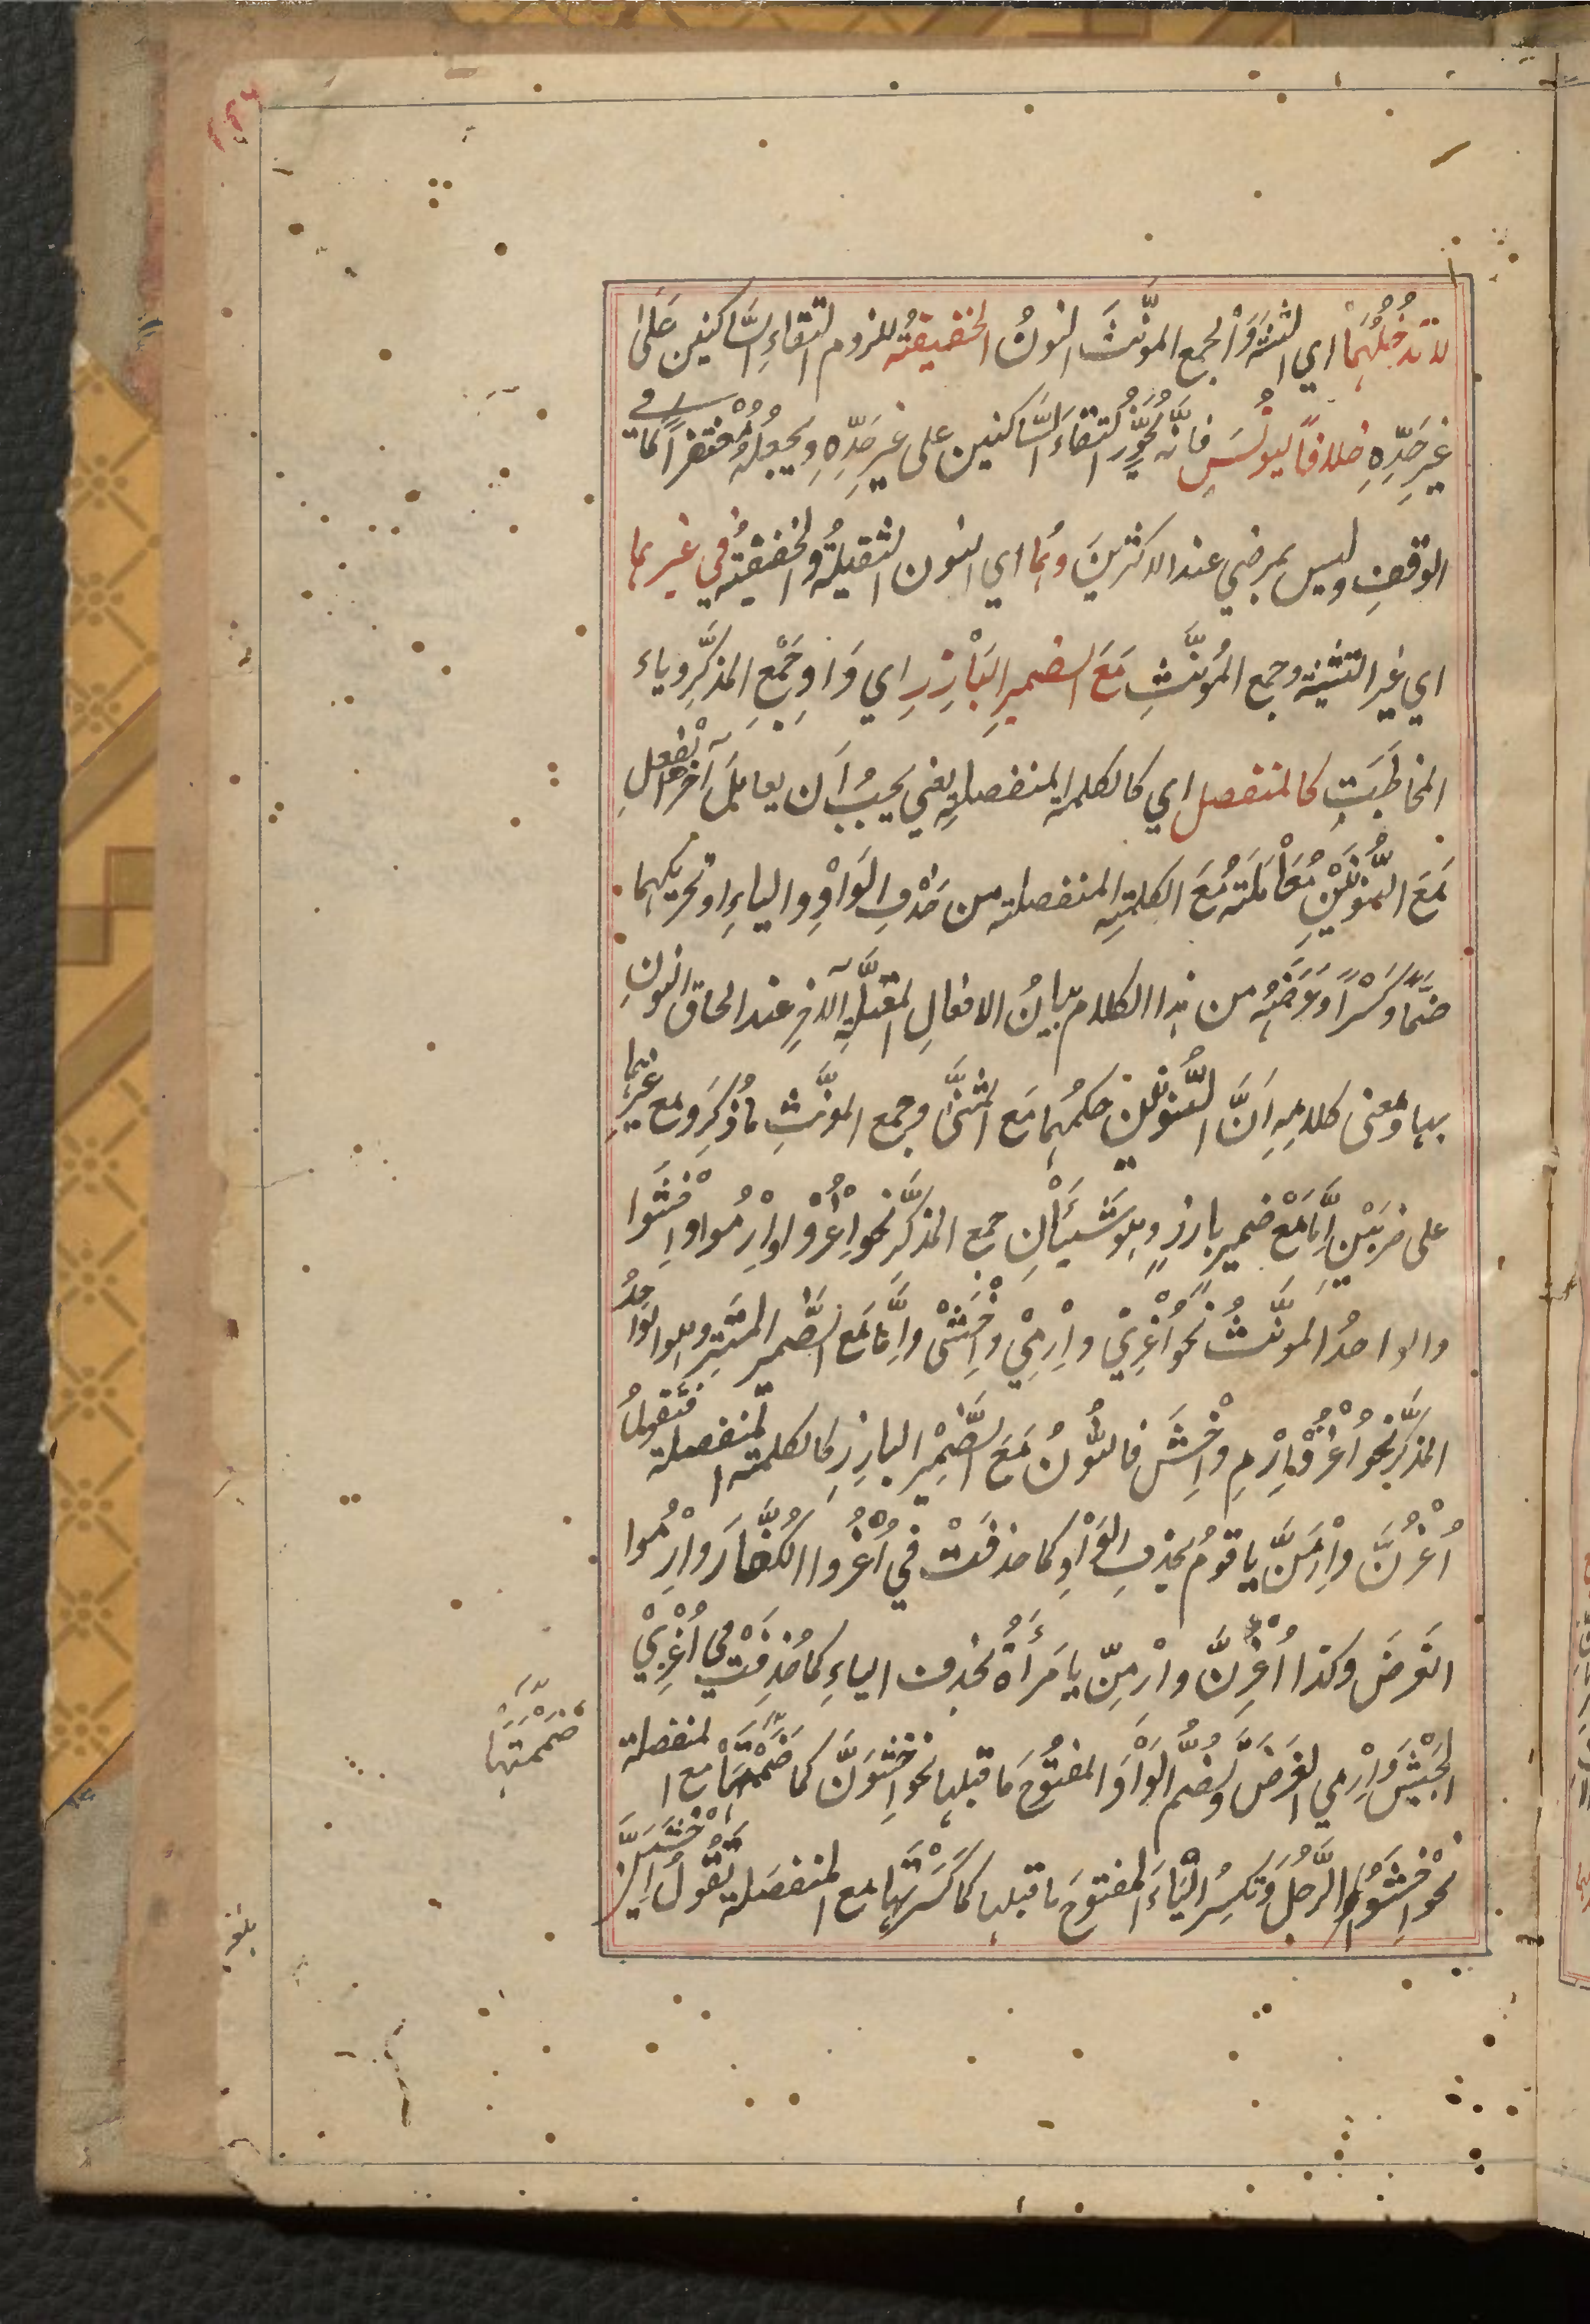 لا تدخلُهُمَا اي التثنية وَالجمع المؤنّثَ النونُ الخفيفةُ للزوم التقاءِ السَّاكنين عَلىٰ
غيرِ حَدِّهِ خلافًا ليُونُسَ فانَّه يُجَوِّزُ التقاءَ السَّاكنين على غيرِ حَدِّهِ ويجعلُهُ مُغْتفرًا كما في
الوقفِ وليس بمرضي عند الاكثرينَ وهُما اي النون الثقيلةُ والخفيفةُ في غيرهما
اي غيرِ التثنية وجمع المُؤنَّثِ مَعَ الضميرِ البَارِزِ اي وَاوِ جَمْعِ المذكَّرِ وياء
المخاطَبَتِ كالمنفصل اي كالكلمة المنفصلة يعني يجبُ اَن يعامَلَ آخرُ الفعلِ
مَعَ النُّونَيْنِ مُعَامَلَتَه مَعَ الكلمتِه المنفصلته من حَذْفِ الوَاوِ والياءِ او تحريكهما
ضَمًّا وكَسْرًا وغَرَضُهُ من هذا الكلام بيانُ الافعالِ المُعتلَّةِ الآخرِ عند الحاق النونِ
بها ومعنى كلامِهِ اَنَّ النُّونَيْن حكمُهُما مَع المثنَّى وجمع المؤنّثِ ما ذُكِرَ ومع غيرِهما
على ضربَيْنِ اِمَّا مَعَ ضميرٍ بارزٍ وهو شَيئَانِ جمع المذكَّرِ نحو اُغْزُوا وارْمُوا واخْشَوا
والواحدُ المؤنَّثُ نحو اُغْزِيْ وارْمِيْ واخْشَىْ واِمَّا مَعَ الضَّمير المستَتِر وهو الواحِدُ
المذكَّر نحو اُغْزُ وارْمِ واخْشَ فالنُّونُ مَعَ الضَّمِيْرِ البارِزِ كالكلمته المنفصلة فتقولُ
اُغْزُنَّ وارْمُنَّ يا قومُ بحذفِ الوَاوِ كما حذفَتْ في اُغْزُوا الكُفَّارَ وارْمُوا
الغرضَ وكذا اُغْزِنَّ وارْمِنّ يا مَرأَةُ بحذف الياءِ كما حُذِفَتْ في اُغْزِيْ
الجَيْشَ وارْمي الغَرَضَ وتُضمُّ الوَاوَ المفتُوحَ مَا قبلها نحو اِخْشَوُنَّ كما ضَمَمْتَهَا مع المنفصلة
نحو اِخْشَوُا الرَّجُلَ وَتكسِرُ اليَاءَ المفتوحَ ما قبلها كما كَسَرْتَها مع المنفصَلة تقُولُ اِخْشَيِنَّ
ضَمَمْتَهَا
بلغ